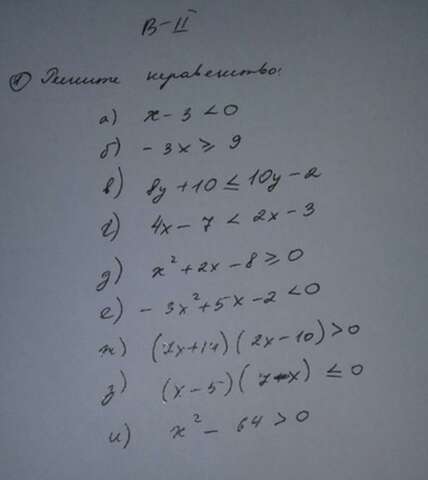 В-II
① Решите неравенство:
а) x - 3 < 0
б) - 3x ≥ 9
в) 8y + 10 ≤ 10y - 2
г) 4x - 7 < 2x - 3
д) x² + 2x - 8 ≥ 0
е) - 3x² + 5x - 2 < 0
ж) (7x+14) (2x - 10) > 0
з) (x - 5) (7-x) ≤ 0
и) x² - 64 > 0